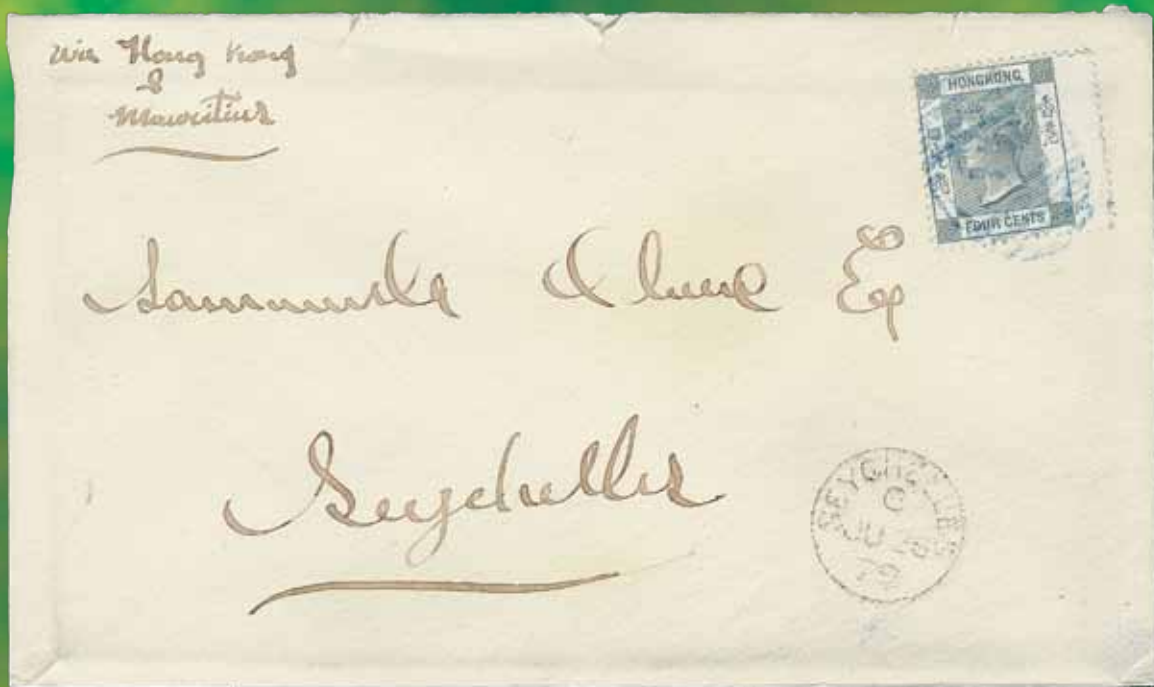 via Hong Kong
&
Mauritius
HONGKONG
FOUR CENTS
Esq
Seychelles
SEYCHELLES
C
JU
79